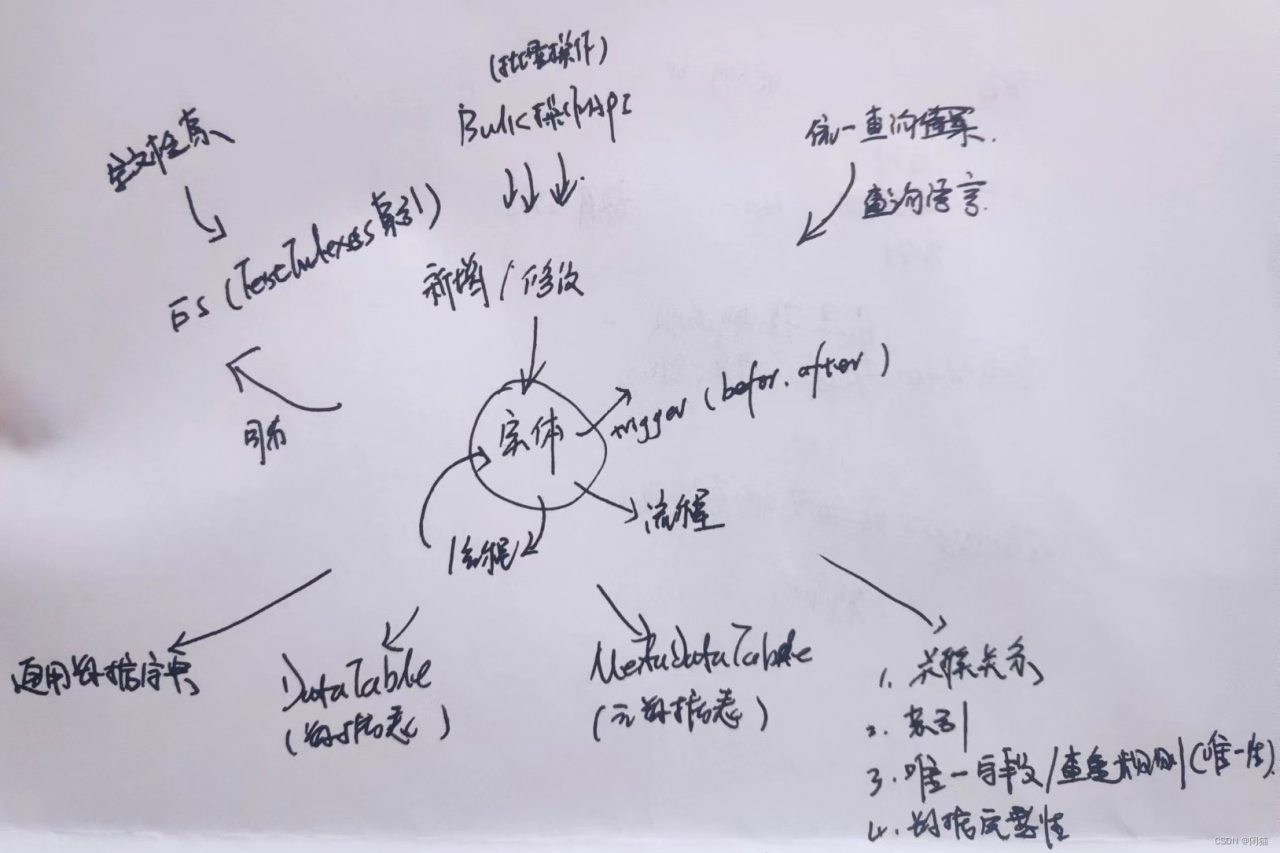 (批量操作)
Bulk操作API
全文检索
统一查询框架.
查询语言.
ES (Text Indexes 索引)
新增 / 修改
同布
实体
trigger ( befor. after )
流程
通用数据字典
DataTable
(数据态)
MetadataTable
(元数据态)
1. 关联关系
2. 索引
3. 唯一字段/查重规则(唯一性)
4. 数据完整性
CSDN @闲猿